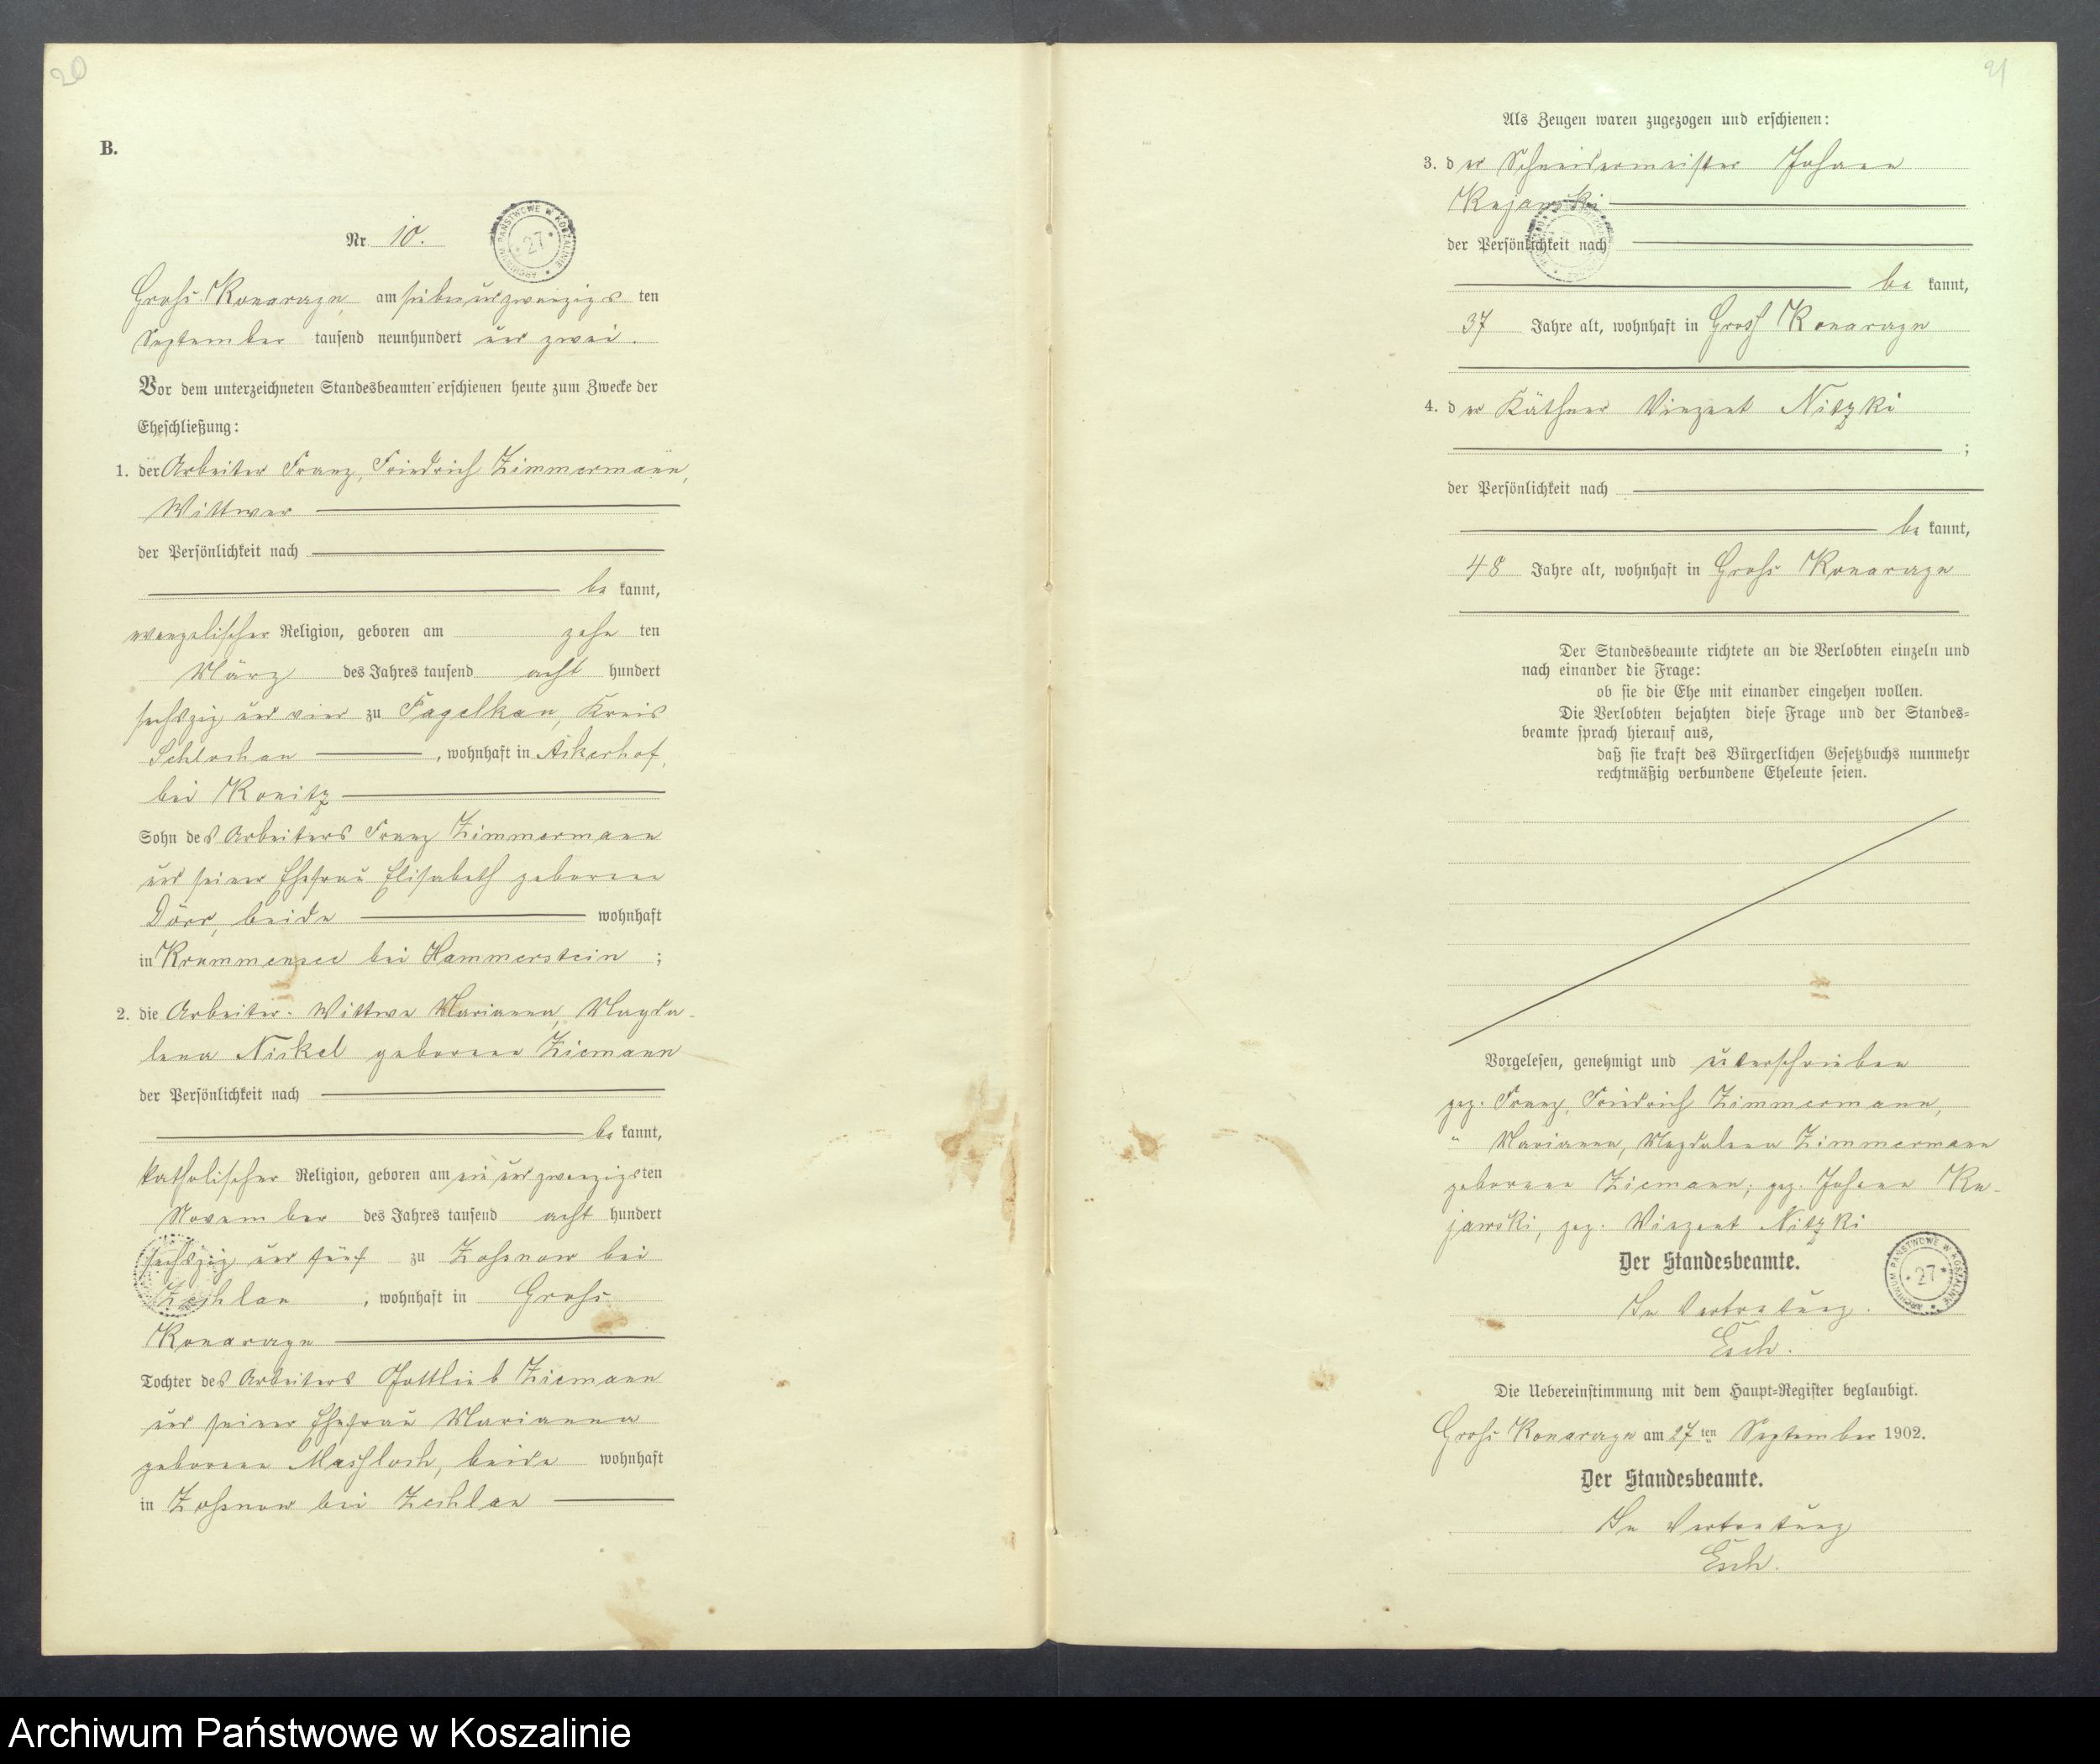 20
B.
Nr. 10.
ARCHIWUM PAŃSTWOWE W KOSZALINIE * 27 *
Groß Konarczyn, am siebenundzwanzigs ten
September tausend neunhundert und zwei.
Vor dem unterzeichneten Standesbeamten erschienen heute zum Zwecke der
Eheschließung:
1. der Arbeiter Franz, Friedrich Zimmermann,
Wittwer
der Persönlichkeit nach
be kannt,
evangelischer Religion, geboren am zehn ten
März des Jahres tausend acht hundert
sechszig und vier zu Sagelkau, Kreis
Schlochau, wohnhaft in Ackerhof,
bei Konitz
Sohn des Arbeiters Franz Zimmermann
und seiner Ehefrau Elisabeth geborene
Dörr, beide wohnhaft
in Krummensee bei Hammerstein ;
2. die Arbeiter-Wittwe Marianna, Magda-
lena Nickel geborene Ziemann
der Persönlichkeit nach
be kannt,
katholischer Religion, geboren am einundzwanzigsten
November des Jahres tausend acht hundert
sechszig und fünf zu Zossnow bei
Zechlau, wohnhaft in Groß
Konarczyn
Tochter des Arbeiters Gottlieb Ziemann
und seiner Ehefrau Marianna
geborene, beide wohnhaft
in Zossnow bei Zechlau
21
Als Zeugen waren zugezogen und erschienen:
3. der Schneidermeister Johann
Kujawski
der Persönlichkeit nach
be kannt,
37 Jahre alt, wohnhaft in Groß Konarczyn
4. der Käthner Vinzent Nitzki
;
der Persönlichkeit nach
be kannt,
48 Jahre alt, wohnhaft in Groß Konarczyn
Der Standesbeamte richtete an die Verlobten einzeln und
nach einander die Frage:
ob sie die Ehe mit einander eingehen wollen.
Die Verlobten bejahten diese Frage und der Standes=
beamte sprach hierauf aus,
daß sie kraft des Bürgerlichen Gesetzbuchs nunmehr
rechtmäßig verbundene Eheleute seien.
Vorgelesen, genehmigt und unterschrieben
gez. Franz, Friedrich Zimmermann,
" Marianna, Magdalena Zimmermann
geborene Ziemann; gez. Johann Ku-
jawski, gez. Vinzent Nitzki
Der Standesbeamte.
In Vertretung.
Esch.
ARCHIWUM PAŃSTWOWE W KOSZALINIE * 27 *
Die Uebereinstimmung mit dem Haupt=Register beglaubigt.
Groß Konarczyn am 27ten September 1902.
Der Standesbeamte.
In Vertretung
Esch.
Archiwum Państwowe w Koszalinie